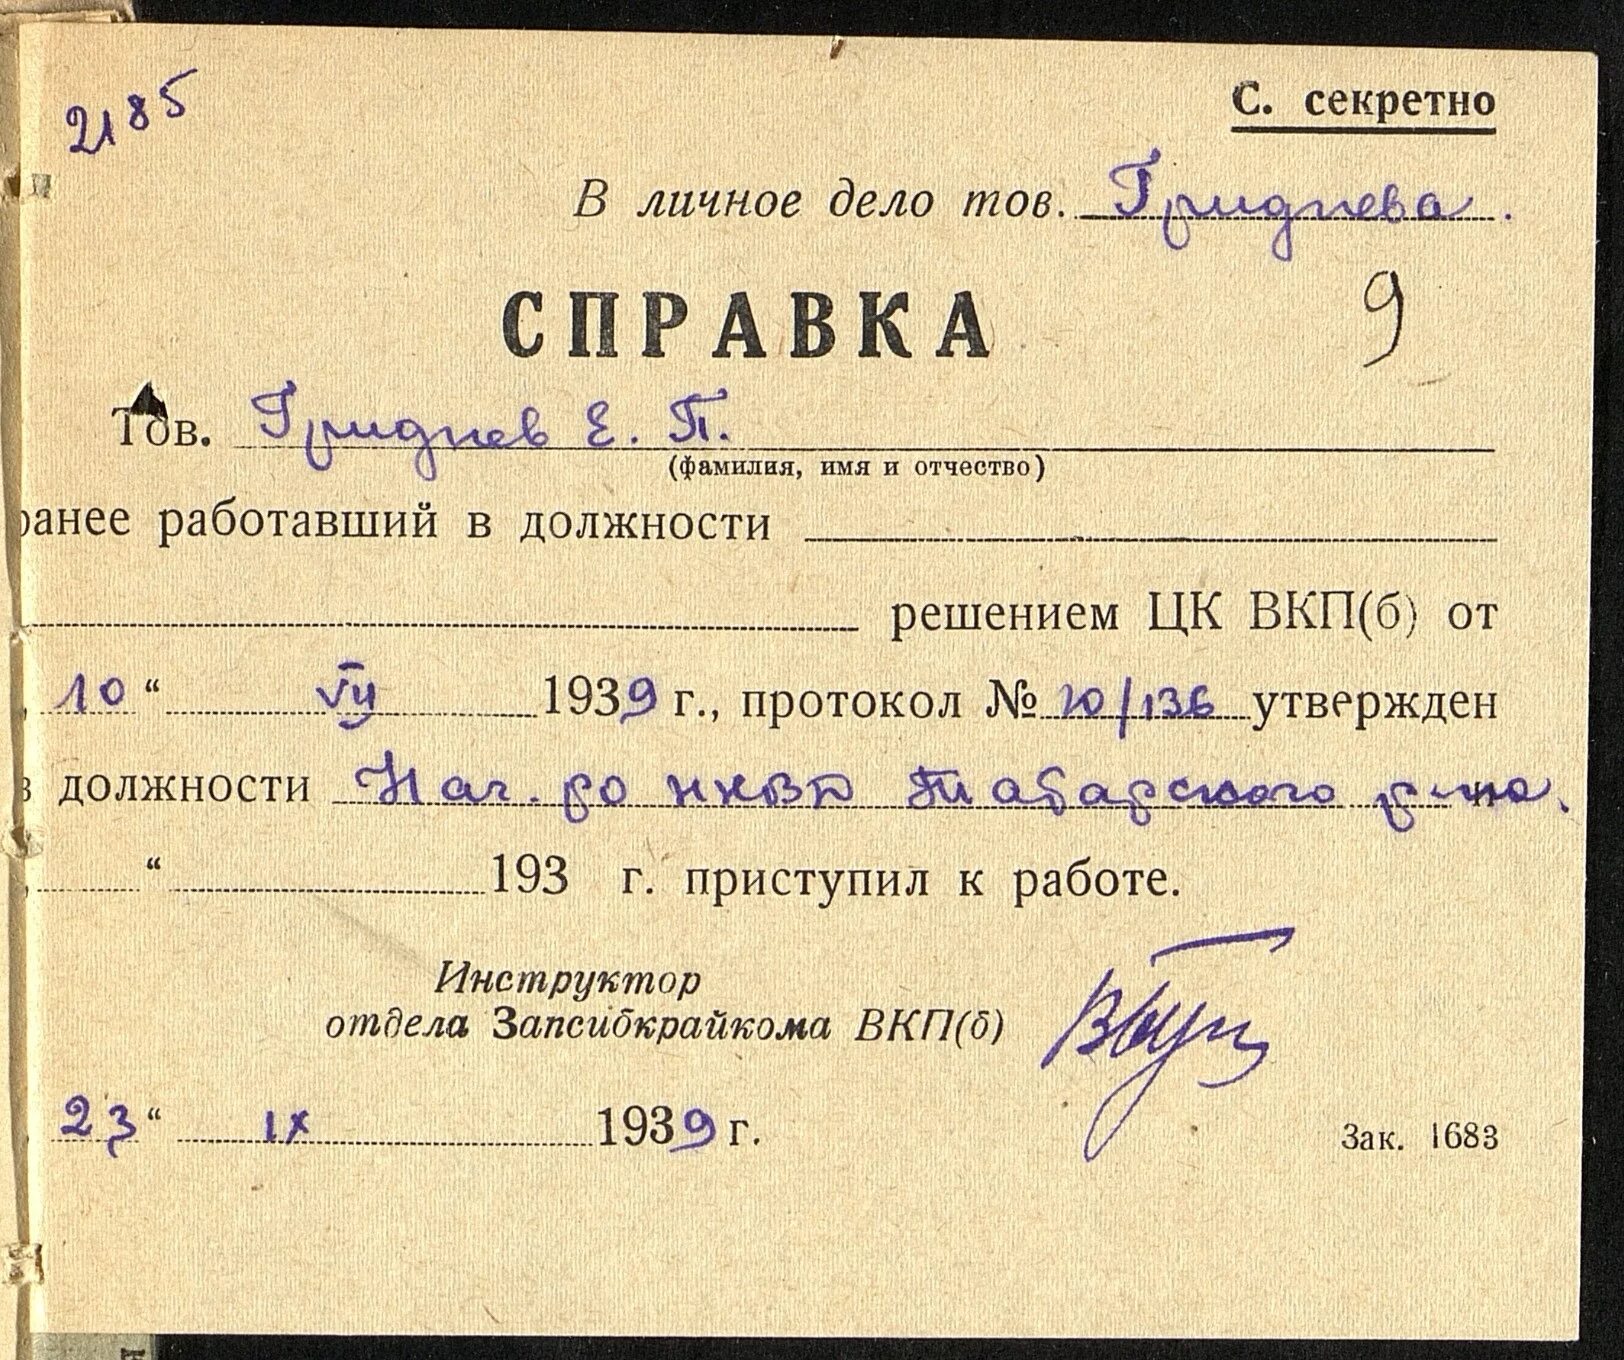 2185
С. секретно
В личное дело тов. Гриднева.
СПРАВКА
9
Тов. Гриднев Е. П.
(фамилия, имя и отчество)
ранее работавший в должности
решением ЦК ВКП(б) от
„10“ VII 1939 г., протокол № 10/136 утвержден
в должности Нач. РО НКВД Табарского р-на.
„ “ 193 г. приступил к работе.
Инструктор
отдела Запсибкрайкома ВКП(б)
23“ IX 1939 г.
Зак. 1683